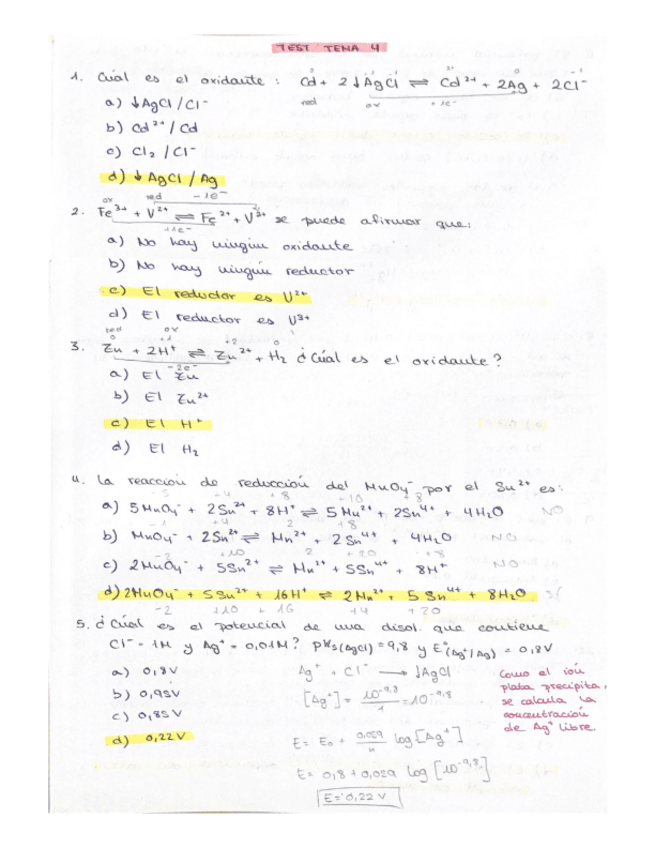 TEST TEMA 4
1. Cuál es el oxidante: Cd + 2↓AgCl ⇌ Cd²⁺ + 2Ag + 2Cl⁻
red ox +1e⁻
a) ↓AgCl/Cl⁻
b) Cd²⁺/Cd
c) Cl₂/Cl⁻
d) ↓AgCl/Ag
ox red -1e⁻
2. Fe³⁺ + V²⁺ ⇌ Fe²⁺ + V³⁺ se puede afirmar que:
+1e⁻
a) No hay ningún oxidante
b) No hay ningún reductor
c) El reductor es V²⁺
d) El reductor es V³⁺
red ox
0 +1 +2 0
3. Zn + 2H⁺ ⇌ Zn²⁺ + H₂ ¿Cuál es el oxidante?
-2e⁻
a) El Zn
b) El Zn²⁺
c) El H⁺
d) El H₂
4. La reacción de reducción del MnO₄⁻ por el Sn²⁺ es:
-5 +4 +8 -10 +8
a) 5MnO₄⁻ + 2Sn²⁺ + 8H⁺ ⇌ 5Mn²⁺ + 2Sn⁴⁺ + 4H₂O NO
-1 +4 2 +8
b) MnO₄⁻ + 2Sn²⁺ ⇌ Mn²⁺ + 2Sn⁴⁺ + 4H₂O NO
-2 +10 2 +20 +8
c) 2MnO₄⁻ + 5Sn²⁺ ⇌ Mn²⁺ + 5Sn⁴⁺ + 8H⁺ NO
d) 2MnO₄⁻ + 5Sn²⁺ + 16H⁺ ⇌ 2Mn²⁺ + 5Sn⁴⁺ + 8H₂O SÍ
-2 +10 + 16 +4 +20
5. ¿Cuál es el potencial de una disol. que contiene
Cl⁻ = 1M y Ag⁺ = 0,01M? pKs(AgCl) = 9,8 y E°(Ag⁺/Ag) = 0,8V
a) 0,8V
b) 0,95V
c) 0,85V
d) 0,22V
Ag⁺ + Cl⁻ ⟶ ↓AgCl
[Ag⁺] = 10⁻⁹·⁸/1 = 10⁻⁹·⁸
E = E₀ + 0,059/n log [Ag⁺]
E = 0,8 + 0,059 log [10⁻⁹·⁸]
E = 0,22 V
Como el ión
plata precipita,
se calcula la
concentración
de Ag⁺ libre.